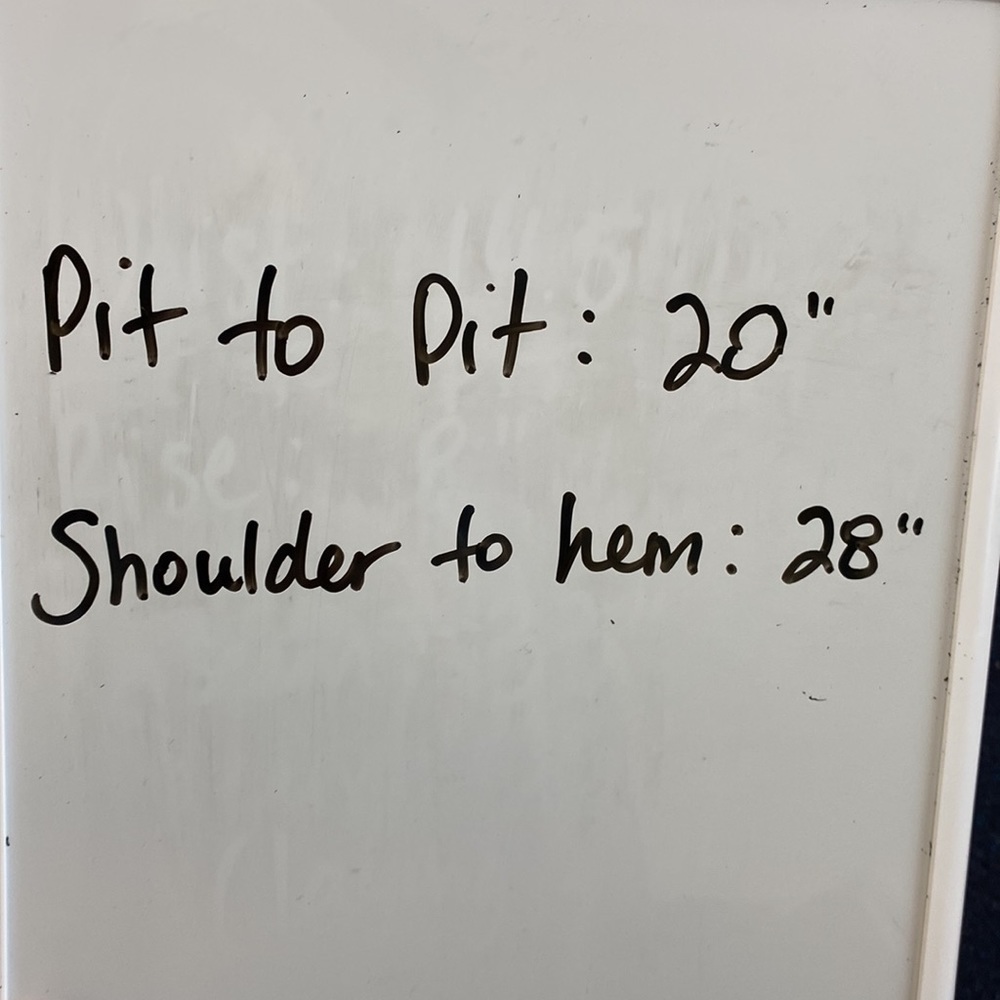 Pit to Pit: 20"
Rise: 8"
Shoulder to hem: 28"